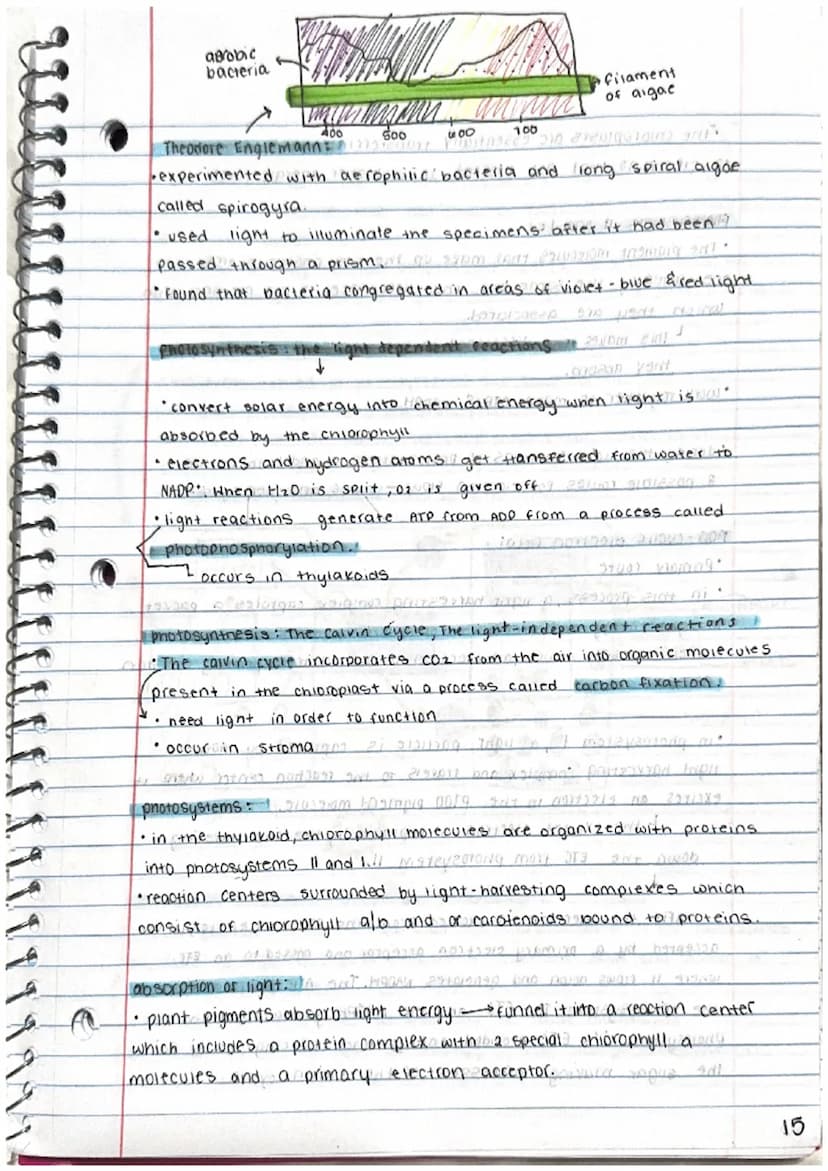 aerobic
bacteria
filament
of algae
400 500 600 700
Theodore Englemann:
•experimented with aerophilic bacteria and long spiral algae
called spirogyra.
• used light to illuminate the specimens after it had been
passed through a prism.
• Found that bacteria congregated in areas of violet-blue & red light
photosynthesis: the light dependent reactions
• convert solar energy into chemical energy when light is
absorbed by the chlorophyll
• electrons and hydrogen atoms get transferred from water to
NADP⁺. When H2O is split, O2 is given off
• light reactions generate ATP from ADP from a process called
photophosphorylation.
occurs in thylakoids
photosynthesis: The Calvin Cycle, The light-independent reactions
• The Calvin cycle incorporates CO2 from the air into organic molecules
present in the chloroplast via a process called carbon fixation.
• need light in order to function
• occur in stroma
photosystems:
• in the thylakoid, chlorophyll molecules are organized with proteins
into photosystems II and I.
• reaction centers surrounded by light-harvesting complexes which
consist of chlorophyll a/b and or carotenoids bound to proteins.
absorption of light:
• plant pigments absorb light energy → funnel it into a reaction center
which includes a protein complex with 2 special chlorophyll a
molecules and a primary electron acceptor.
15